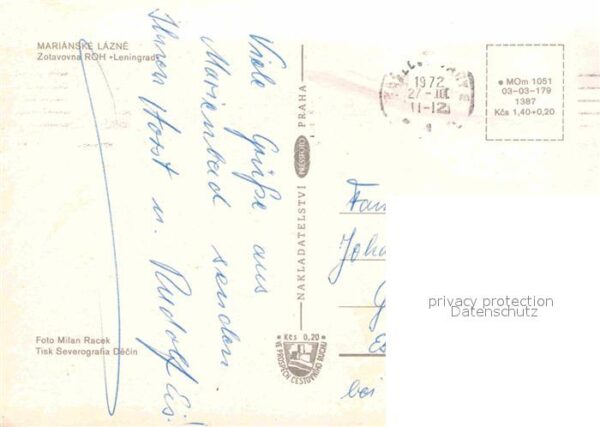 MARIÁNSKÉ LÁZNĚ
Zotavovna ROH «Leningrad»
Viele Grüße aus
Marienbad senden
Horst u. Rudolf
Foto Milan Racek
Tisk Severografia Děčín
NAKLADATELSTVÍ PRESSFOTO PRAHA
Kčs 0,20
VE PROSPĚCH CESTOVNÍHO RUCHU
1972
27-III
11-12
MOm 1051
03-03-179
1387
Kčs 1,40+0,20
Fam
Joha
bei
privacy protection
Datenschutz